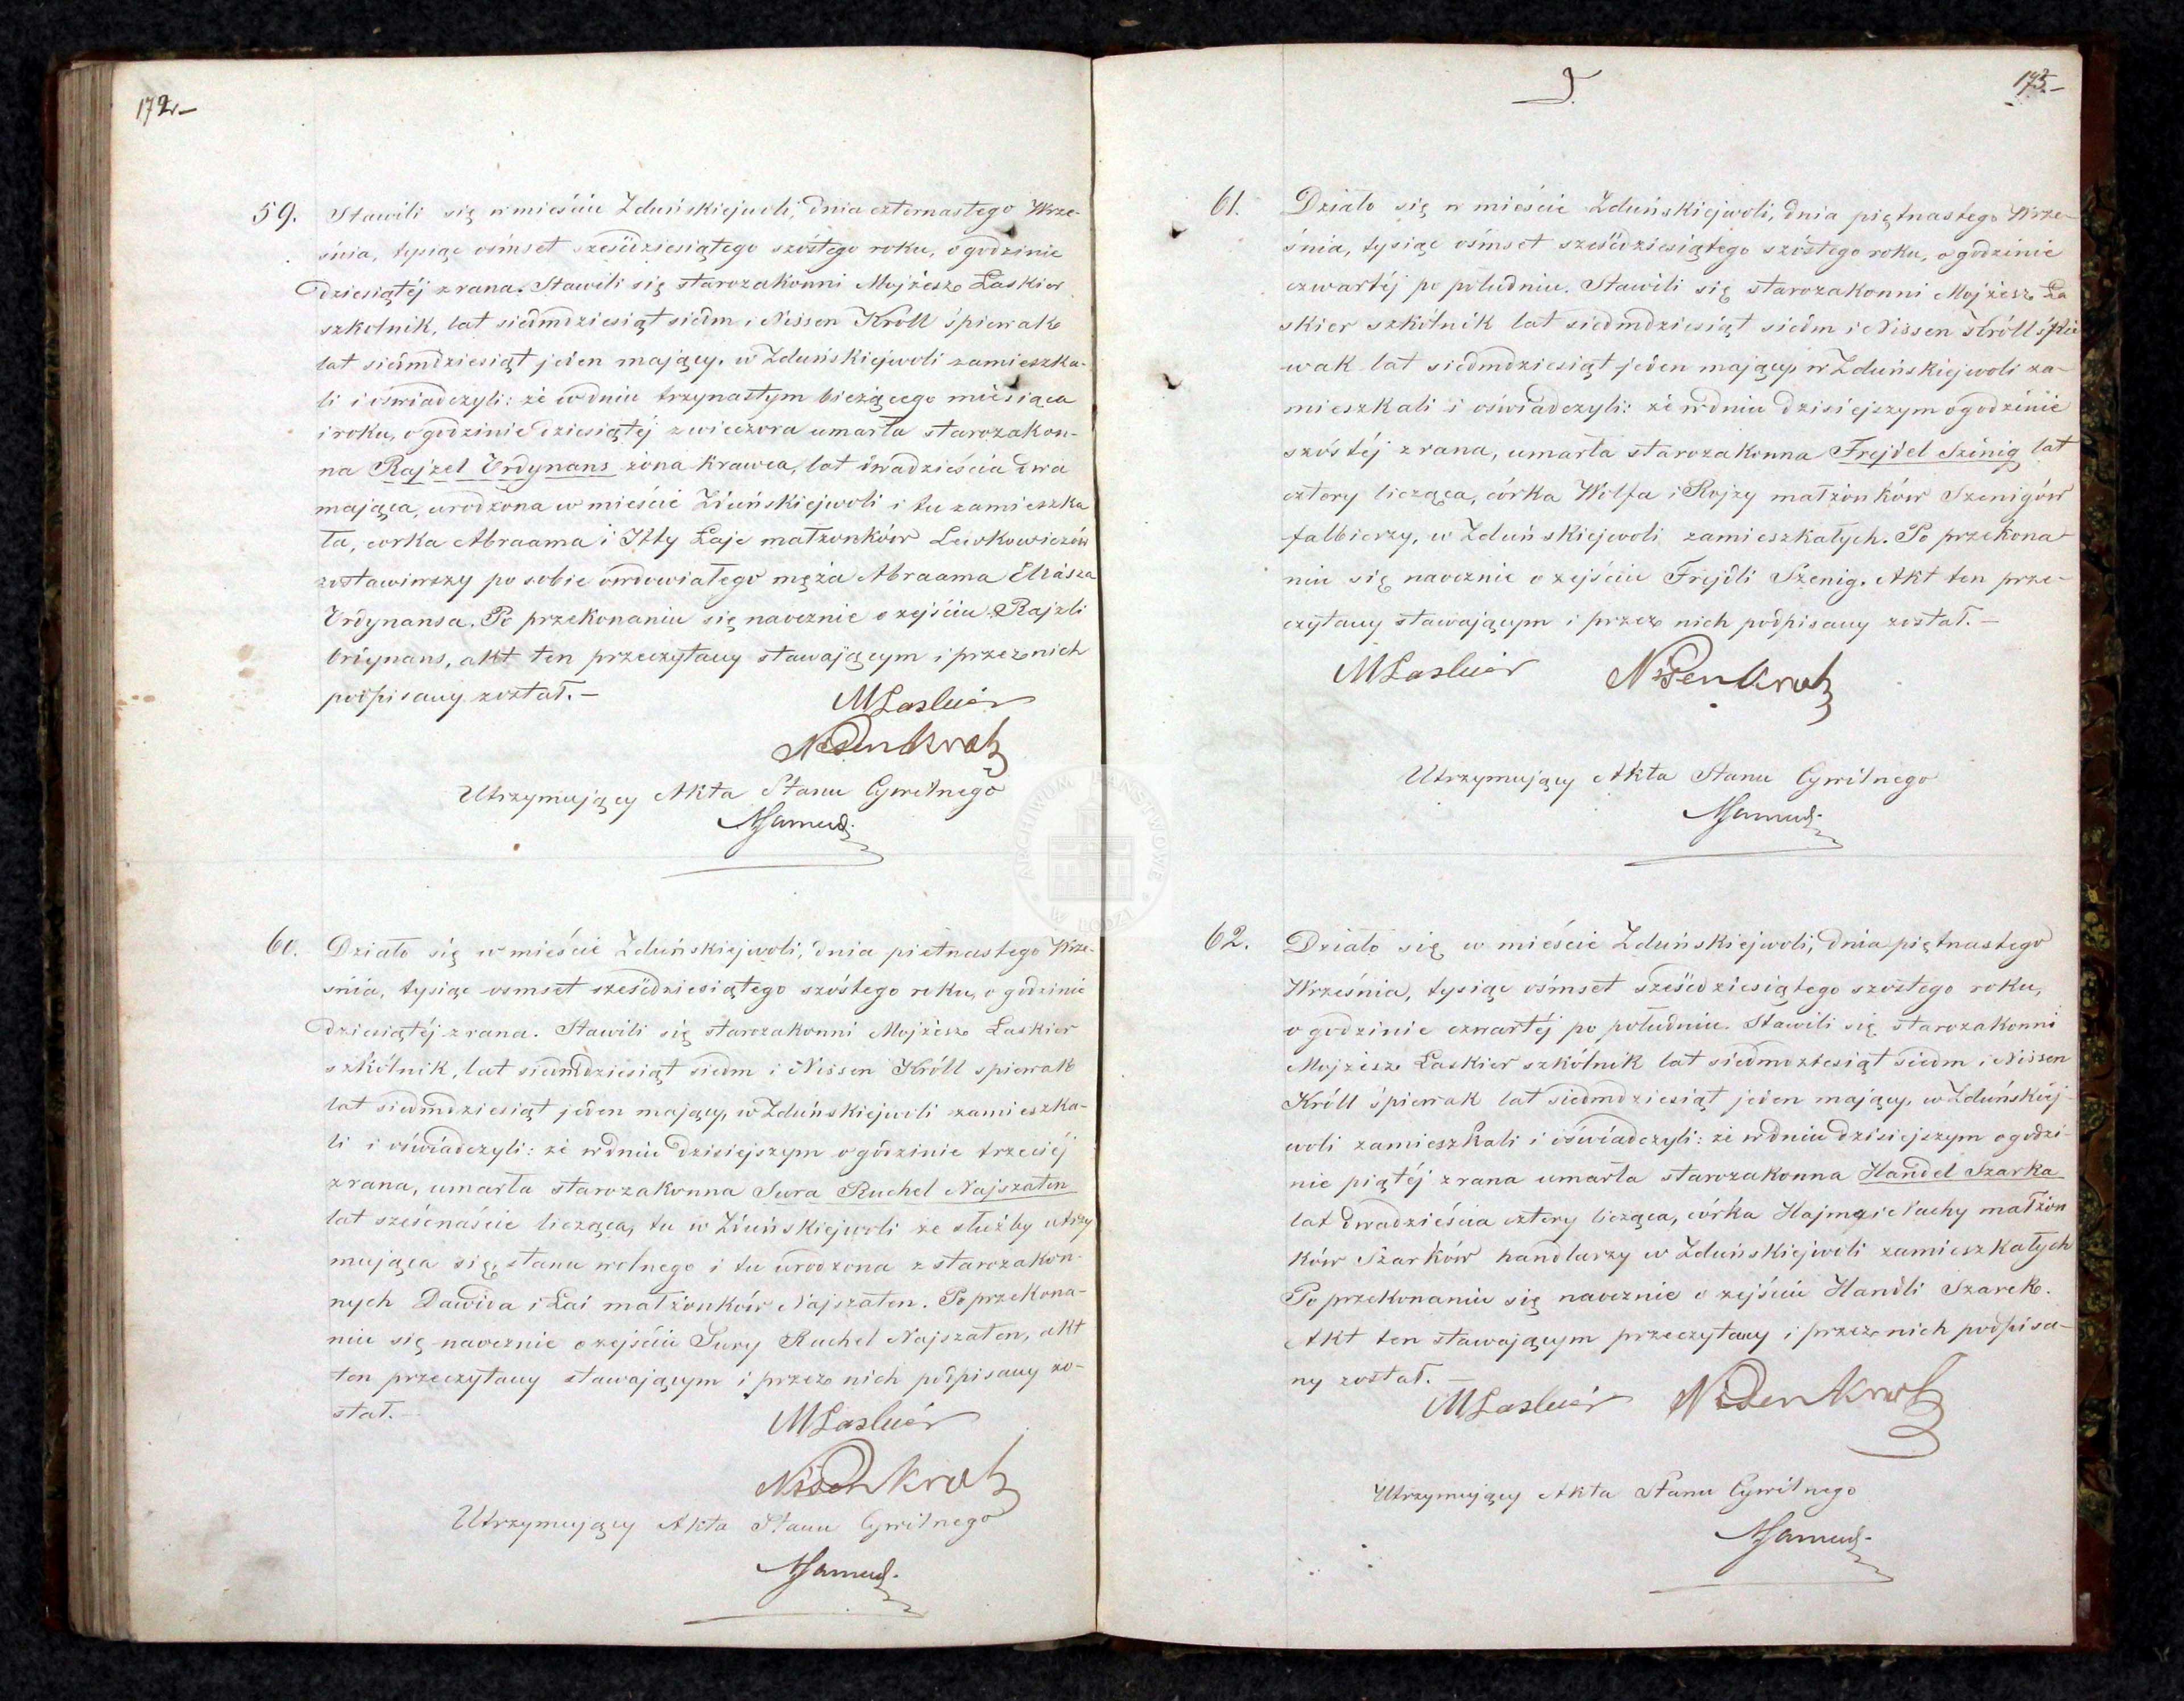 172.
59. Stawili się w mieście Zduńskiejwoli, dnia czternastego Wrze-
śnia, tysiąc ośmset sześćdziesiątego szóstego roku, o godzinie
dziesiątéj z rana. Stawili się starozakonni Mojżesz Laskier
szkolnik, lat siedmdziesiąt siedm i Nissen Króll śpiewak
lat siedmdziesiąt jeden mający, w Zduńskiejwoli zamieszka-
li i oświadczyli: że w dniu trzynastym bieżącego miesiąca
i roku, o godzinie dziesiątéj z wieczora umarła starozakon-
na Rajzel Ordynans żona krawca, lat dwadzieścia dwa
mająca, urodzona w mieście Zduńskiejwoli i tu zamieszka
ła, corka Abraama i Itty Łaje małżonków Lewkowiczów
zostawiwszy po sobie owdowiałego męża Abraama Eliasza
Ordynansa. Po przekonaniu się naocznie o zejściu Rajzli
Ordynans, akt ten przeczytany stawającym i przez nich
podpisany został. —
MLaskier
Nissen Krol
Utrzymujący Akta Stanu Cywilnego
60. Działo się w mieście Zduńskiejwoli, dnia piętnastego Wrze-
śnia, tysiąc osmset sześćdziesiątego szóstego roku, o godzinie
dziesiątéj z rana. Stawili się starozakonni Mojżesz Laskier
szkólnik, lat siedmdziesiąt siedm i Nissen Króll spiewak
lat siedmdziesiąt jeden mający, w Zduńskiejwoli zamieszka-
li i oświadczyli: że w dniu dzisiejszym o godzinie trzeciéj
z rana, umarła starozakonna Sura Ruchel Najszaten
lat szesnaście licząca, tu w Zduńskiejwoli ze służby utrzy
mująca się, stanu wolnego i tu urodzona z starozakon-
nych Dawida i Łai małżonków Najszaten. Po przekona-
niu się naocznie o zejściu Sury Ruchel Najszaten, akt
ten przeczytany stawającym i przez nich podpisany zo-
stał. —
MLaskier
Nissen Krol
Utrzymujący Akta Stanu Cywilnego
173.
61. Działo się w mieście Zduńskiejwoli, dnia piętnastego Wrze-
śnia, tysiąc ośmset sześćdziesiątego szóstego roku, o godzinie
czwartéj po południu. Stawili się starozakonni Mojżesz La
skier szkólnik lat siedmdziesiąt siedm i Nissen Króll śpie
wak lat siedmdziesiąt jeden mający w Zduńskiejwoli za-
mieszkali i oświadczyli: że w dniu dzisiejszym o godzinie
szóstéj z rana, umarła starozakonna Frejdel Szenig lat
cztery licząca, córka Wolfa i Rojzy małżonków Szenigów
falbierzy, w Zduńskiejwoli zamieszkałych. Po przekona-
niu się naocznie o zejściu Frejdli Szenig. Akt ten prze-
czytany stawającym i przez nich podpisany został. —
MLaskier Nissen Krol
Utrzymujący Akta Stanu Cywilnego
62. Działo się w mieście Zduńskiejwoli, dnia piętnastego
Września, tysiąc ośmset sześćdziesiątego szóstego roku,
o godzinie czwartéj po południu. Stawili się starozakonni
Mojżesz Laskier szkólnik lat siedmdziesiąt siedm i Nissen
Króll śpiewak lat siedmdziesiąt jeden mający, w Zduńskiéj-
woli zamieszkali i oświadczyli: że w dniu dzisiejszym o godzi-
nie piątéj z rana umarła starozakonna Handel Szarka
lat dwadzieścia cztery licząca, córka Hajma i Nachy małżon
ków Szarków handlarzy w Zduńskiejwoli zamieszkałych
Po przekonaniu się naocznie o zejściu Handli Szarek.
Akt ten stawającym przeczytany i przez nich podpisa-
ny został.
MLaskier Nissen Krol
Utrzymujący Akta Stanu Cywilnego
ARCHIWUM PAŃSTWOWE W ŁODZI